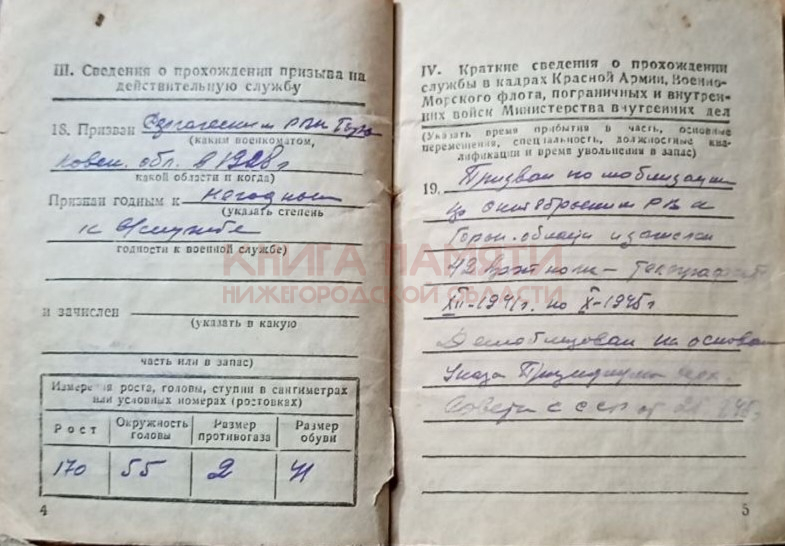 III. Сведения о прохождении призыва на
действительную службу
18. Призван Сергачским РВК Горь
(каким военкоматом,
ковск. обл. в 1928 г
какой области и когда)
Признан годным к негодным
(указать степень
к в/службе
годности к военной службе)
и зачислен
(указать в какую
часть или в запас)
Измерения роста, головы, ступни в сантиметрах
или условных номерах (ростовках)
Рост Окружность головы Размер противогаза Размер обуви
170 55 2 41
4
IV. Краткие сведения о прохождении
службы в кадрах Красной Армии, Военно-
Морского флота, пограничных и внутрен-
них войск Министерства внутренних дел
(Указать время прибытия в часть, основные
перемещения, специальность, должностные ква-
лификации и время увольнения в запас)
19. Призван по мобилизации
Октябрьским РВК
Горьк. области
42
XII-1941г. по X-1945г
Демобилизован на основан
Указа Президиума верх.
Совета СССР от
5
КНИГА ПАМЯТИ
НИЖЕГОРОДСКОЙ ОБЛАСТИ